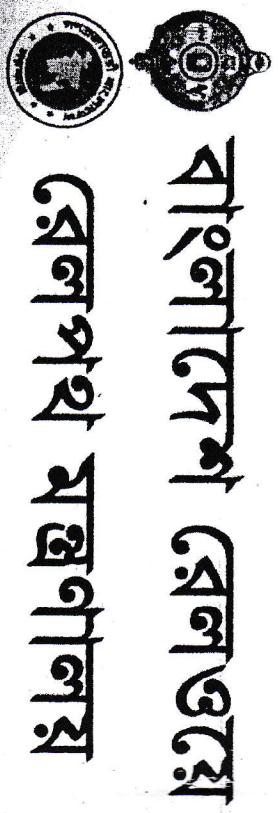 বাংলাদেশ রেলওয়ে
রেলপথ মন্ত্রণালয়